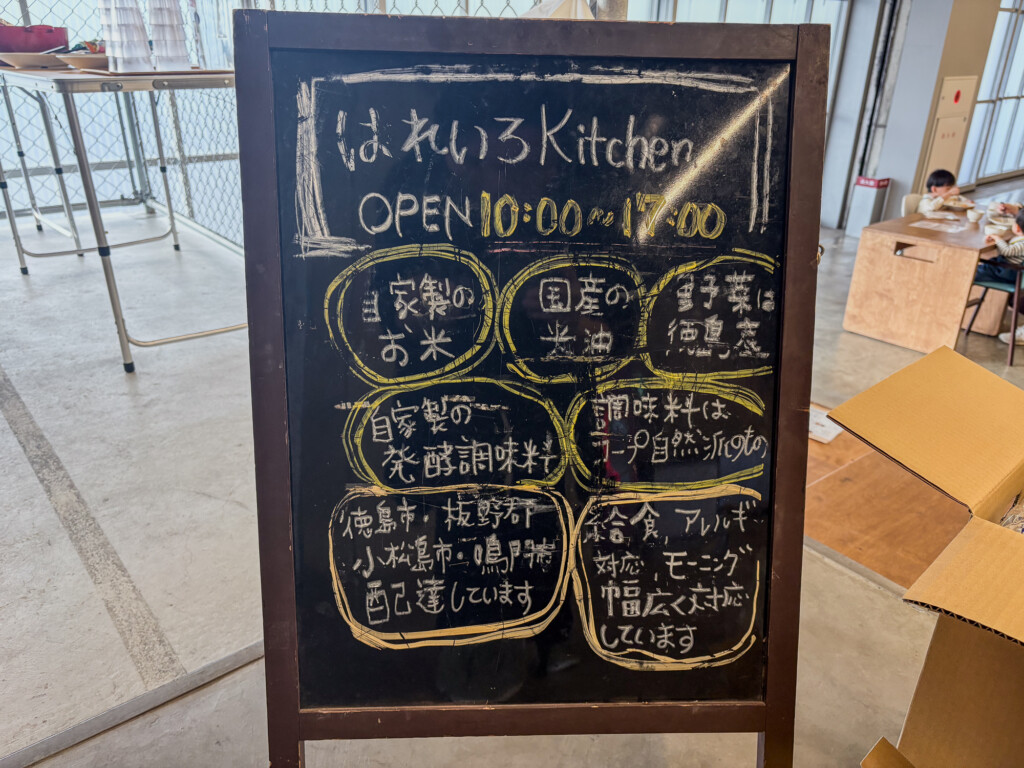 はれいろKitchen
OPEN 10:00〜17:00
自家製の
お米
国産の
米油
野菜は
徳島産
自家製の
発酵調味料
調味料は
コープ自然派のもの
徳島市・板野郡
小松島市・鳴門市
配達しています
給食,アレルギー
対応,モーニング
幅広く対応
しています